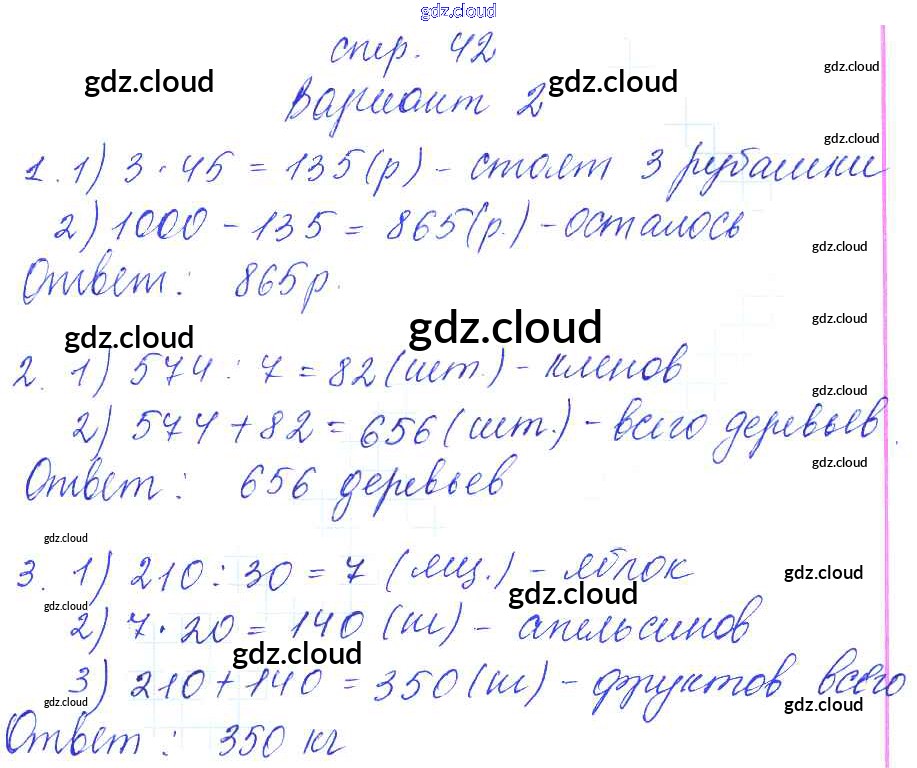 gdz.cloud
стр. 42
gdz.cloud gdz.cloud gdz.cloud
Вариант 2
gdz.cloud
1. 1) 3 · 45 = 135 (р) - стоят 3 рубашки
2) 1000 - 135 = 865 (р.) - осталось
gdz.cloud
Ответ: 865 р.
gdz.cloud gdz.cloud gdz.cloud
2. 1) 574 : 7 = 82 (шт.) - кленов
gdz.cloud
2) 574 + 82 = 656 (шт.) - всего деревьев
gdz.cloud
Ответ: 656 деревьев
gdz.cloud
3. 1) 210 : 30 = 7 (ящ.) - яблок
gdz.cloud gdz.cloud gdz.cloud
2) 7 · 20 = 140 (ш) - апельсинов
gdz.cloud
3) 210 + 140 = 350 (ш) - фруктов всего
gdz.cloud gdz.cloud
Ответ: 350 кг